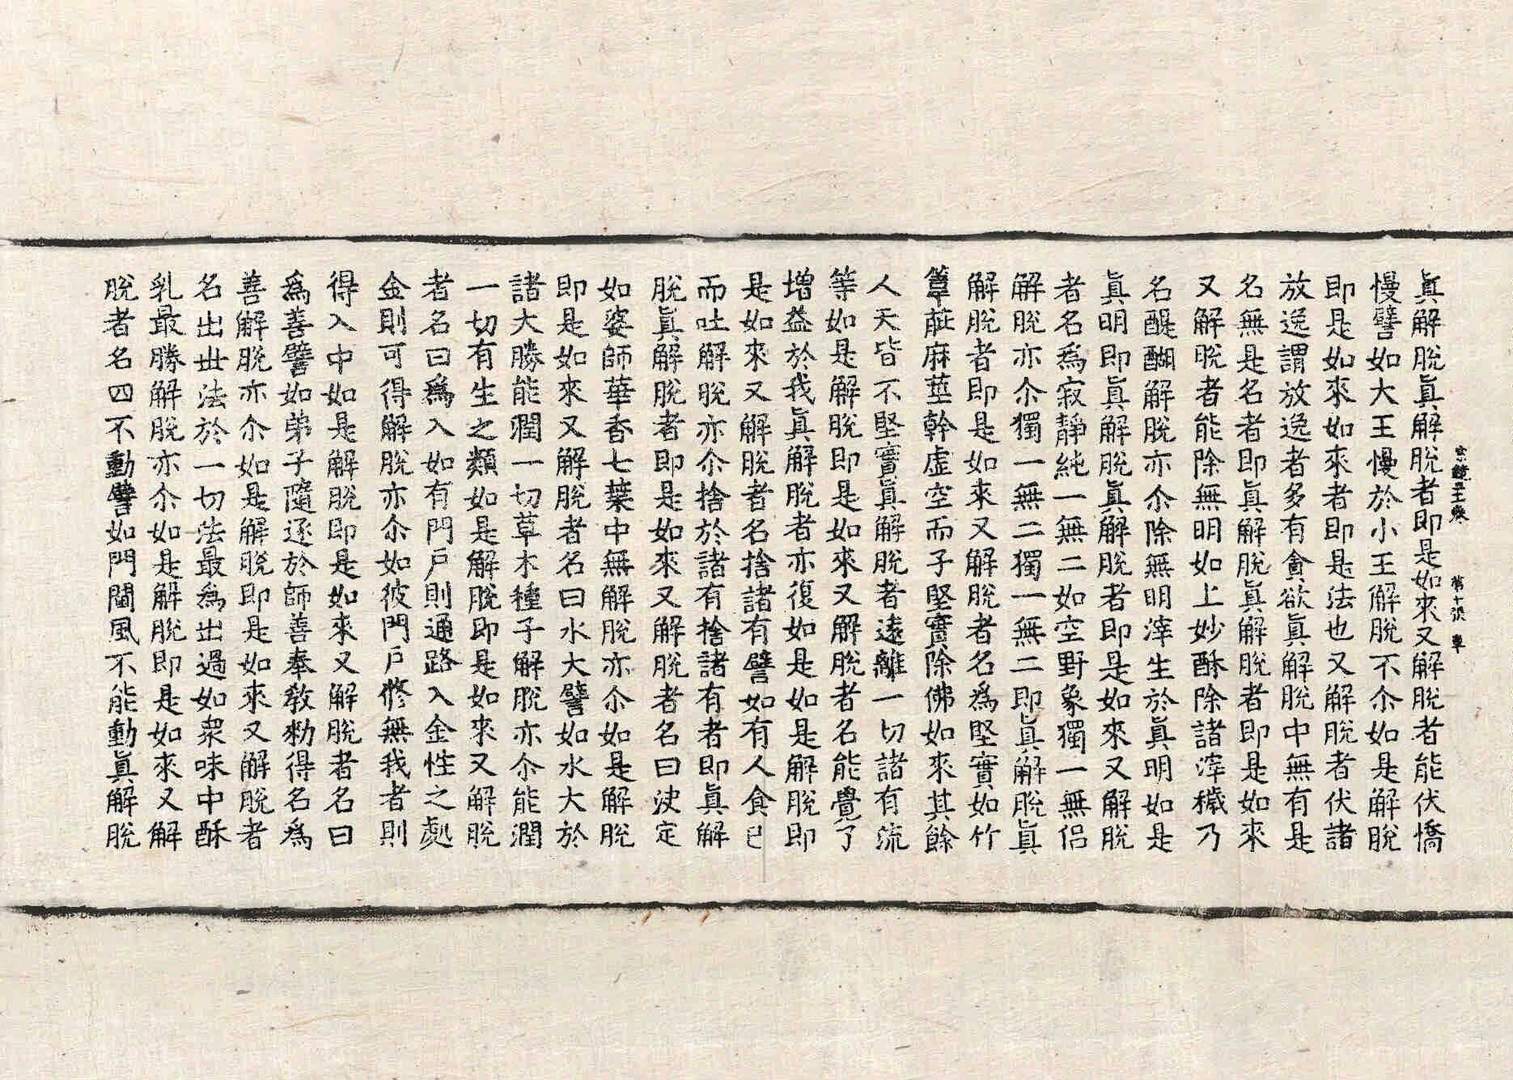 真解脫真解脫者即是如來又解脫者能伏憍
慢譬如大王慢於小王解脫不尒如是解脫
即是如來如來者即是法也又解脫者伏諸
放逸謂放逸者多有貪欲真解脫中無有是
名無是名者即真解脫真解脫者即是如來
又解脫者能除無明如上妙酥除諸滓穢乃
名醍醐解脫亦尒除無明滓生於真明如是
真明即真解脫真解脫者即是如來又解脫
者名為寂靜純一無二如空野象獨一無侶
解脫亦尒獨一無二獨一無二即真解脫真
解脫者即是如來又解脫者名為堅實如竹
葦𦮼麻莖幹虛空而子堅實除佛如來其餘
人天皆不堅實真解脫者遠離一切諸有流
等如是解脫即是如來又解脫者名能覺了
增益於我真解脫者亦復如是如是解脫即
是如來又解脫者名捨諸有譬如有人食已
而吐解脫亦尒捨於諸有捨諸有者即真解
脫真解脫者即是如來又解脫者名曰決定
如婆師華香七葉中無解脫亦尒如是解脫
即是如來又解脫者名曰水大譬如水大於
諸大勝能潤一切草木種子解脫亦尒能潤
一切有生之類如是解脫即是如來又解脫
者名曰為入如有門戶則通路入金性之處
金則可得解脫亦尒如彼門戶修無我者則
得入中如是解脫即是如來又解脫者名曰
為善譬如弟子隨逐於師善奉教勑得名為
善解脫亦尒如是解脫即是如來又解脫者
名出世法於一切法最為出過如眾味中酥
乳最勝解脫亦尒如是解脫即是如來又解
脫者名曰不動譬如門閫風不能動真解脫